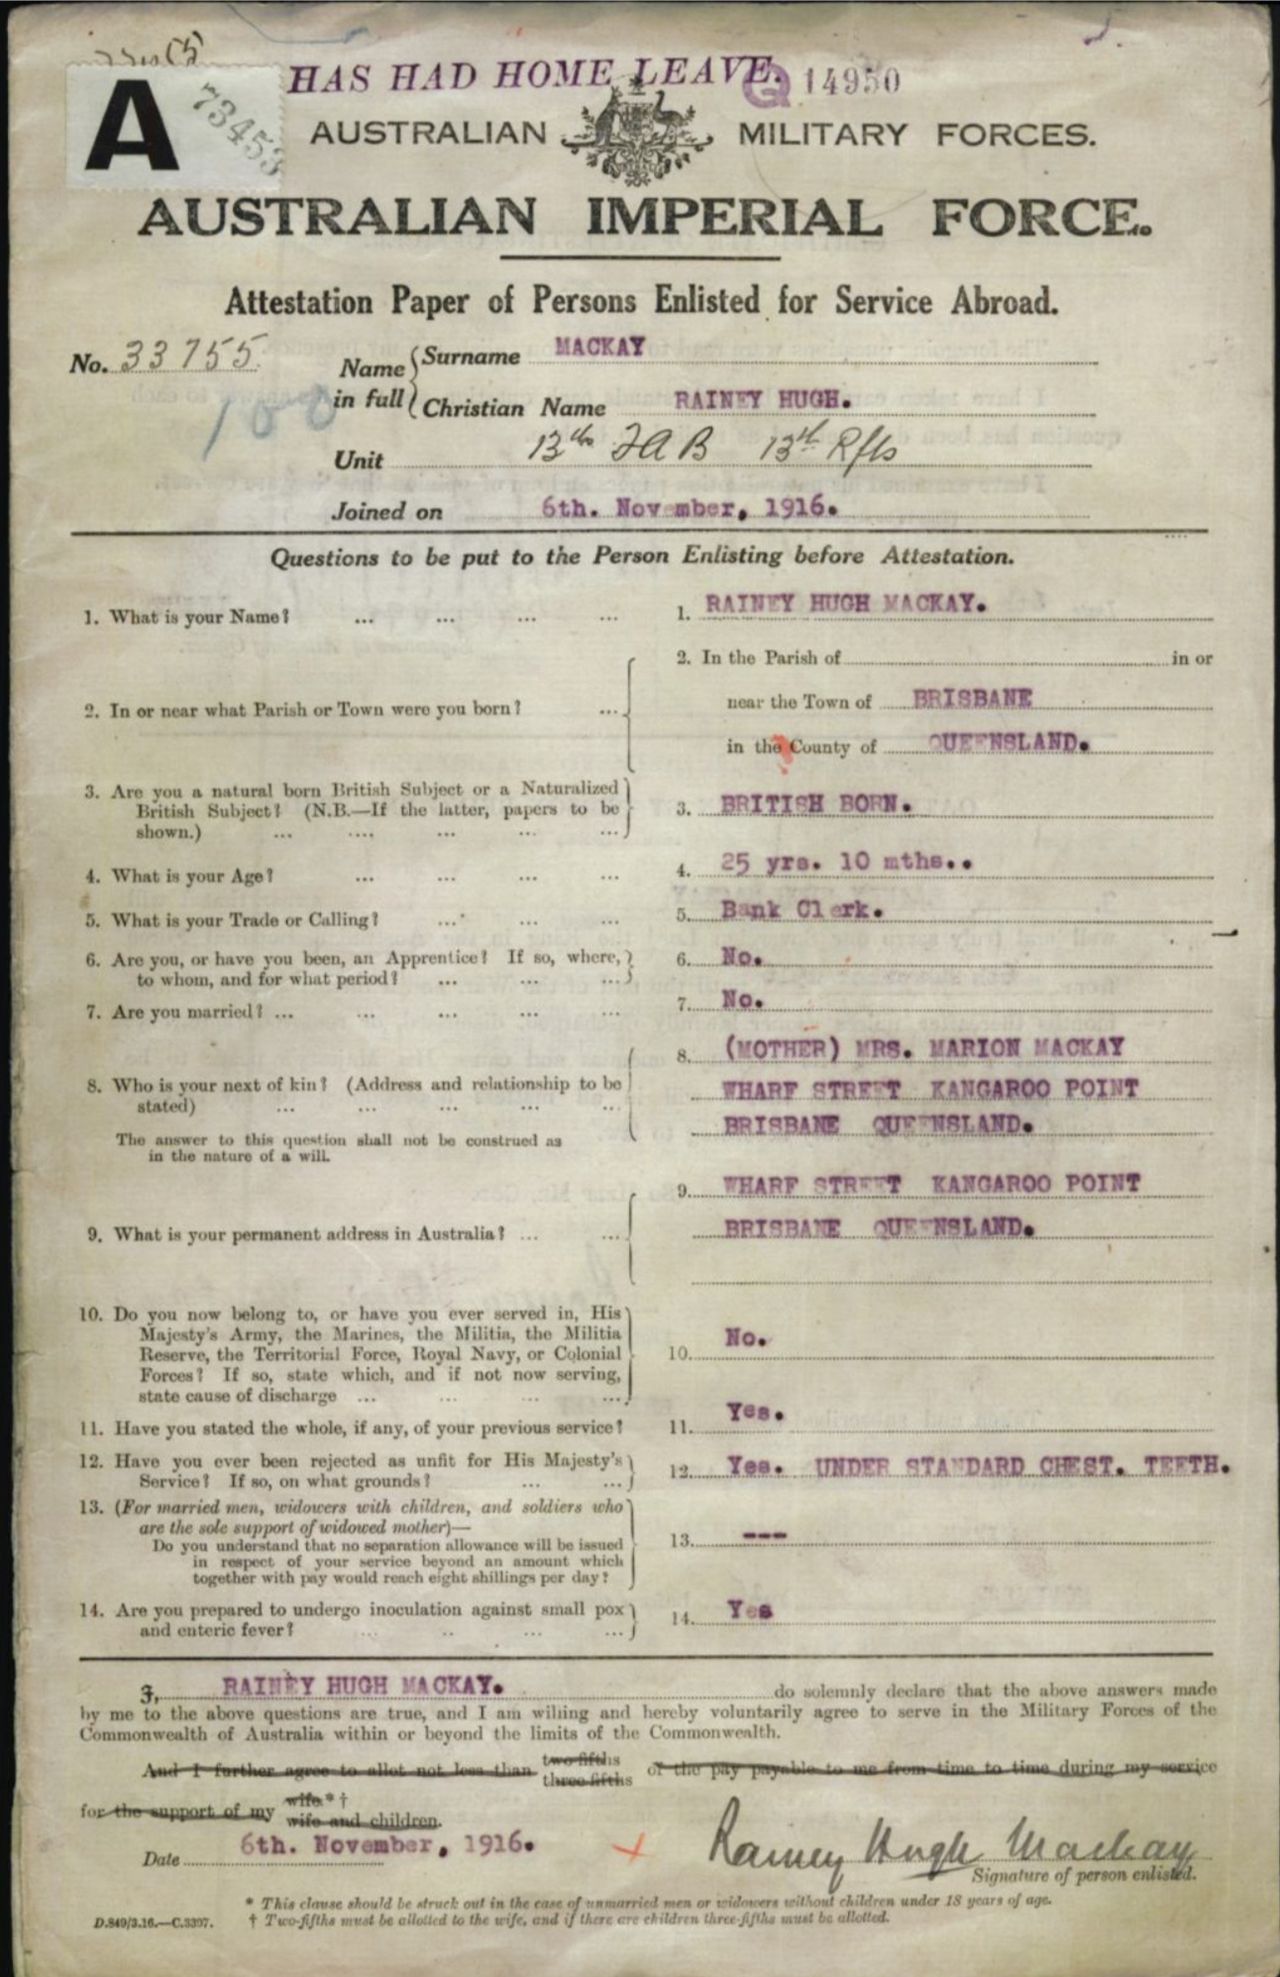 HAS HAD HOME LEAVE.
Q 14950
A 73453
AUSTRALIAN MILITARY FORCES.
AUSTRALIAN IMPERIAL FORCE.
Attestation Paper of Persons Enlisted for Service Abroad.
No. 33755.
Name in full { Surname MACKAY
Christian Name RAINEY HUGH.
100
Unit 13th FAB 13th Rfts
Joined on 6th. November, 1916.
Questions to be put to the Person Enlisting before Attestation.
1. What is your Name? ... ... ... ... 1. RAINEY HUGH MACKAY.
2. In or near what Parish or Town were you born? ... 2. In the Parish of in or
near the Town of BRISBANE
in the County of QUEENSLAND.
3. Are you a natural born British Subject or a Naturalized
British Subject? (N.B.—If the latter, papers to be
shown.) ... .... ... ... ... 3. BRITISH BORN.
4. What is your Age? ... ... ... ... 4. 25 yrs. 10 mths..
5. What is your Trade or Calling? ... ... ... 5. Bank Clerk.
6. Are you, or have you been, an Apprentice? If so, where,
to whom, and for what period? ... ... ... 6. No.
7. Are you married? ... ... ... ... ... 7. No.
8. Who is your next of kin? (Address and relationship to be
stated) ... ... ... ... ...
The answer to this question shall not be construed as
in the nature of a will.
8. (MOTHER) MRS. MARION MACKAY
WHARF STREET KANGAROO POINT
BRISBANE QUEENSLAND.
9. What is your permanent address in Australia? ... ...
9. WHARF STREET KANGAROO POINT
BRISBANE QUEENSLAND.
10. Do you now belong to, or have you ever served in, His
Majesty's Army, the Marines, the Militia, the Militia
Reserve, the Territorial Force, Royal Navy, or Colonial
Forces? If so, state which, and if not now serving,
state cause of discharge ... ... ... ... 10. No.
11. Have you stated the whole, if any, of your previous service? 11. Yes.
12. Have you ever been rejected as unfit for His Majesty's
Service? If so, on what grounds? ... ... 12. Yes. UNDER STANDARD CHEST. TEETH.
13. (For married men, widowers with children, and soldiers who
are the sole support of widowed mother)—
Do you understand that no separation allowance will be issued
in respect of your service beyond an amount which
together with pay would reach eight shillings per day? 13. ---
14. Are you prepared to undergo inoculation against small pox
and enteric fever? ... .. ... ... 14. Yes
I, RAINEY HUGH MACKAY. do solemnly declare that the above answers made
by me to the above questions are true, and I am willing and hereby voluntarily agree to serve in the Military Forces of the
Commonwealth of Australia within or beyond the limits of the Commonwealth.
And I further agree to allot not less than two-fifths three-fifths of the pay payable to me from time to time during my service
for the support of my wife* † wife and children.
Date 6th. November, 1916.
Rainey Hugh Mackay
Signature of person enlisted.
* This clause should be struck out in the case of unmarried men or widowers without children under 18 years of age.
D.849/3.16.—C.3397. † Two-fifths must be allotted to the wife, and if there are children three-fifths must be allotted.